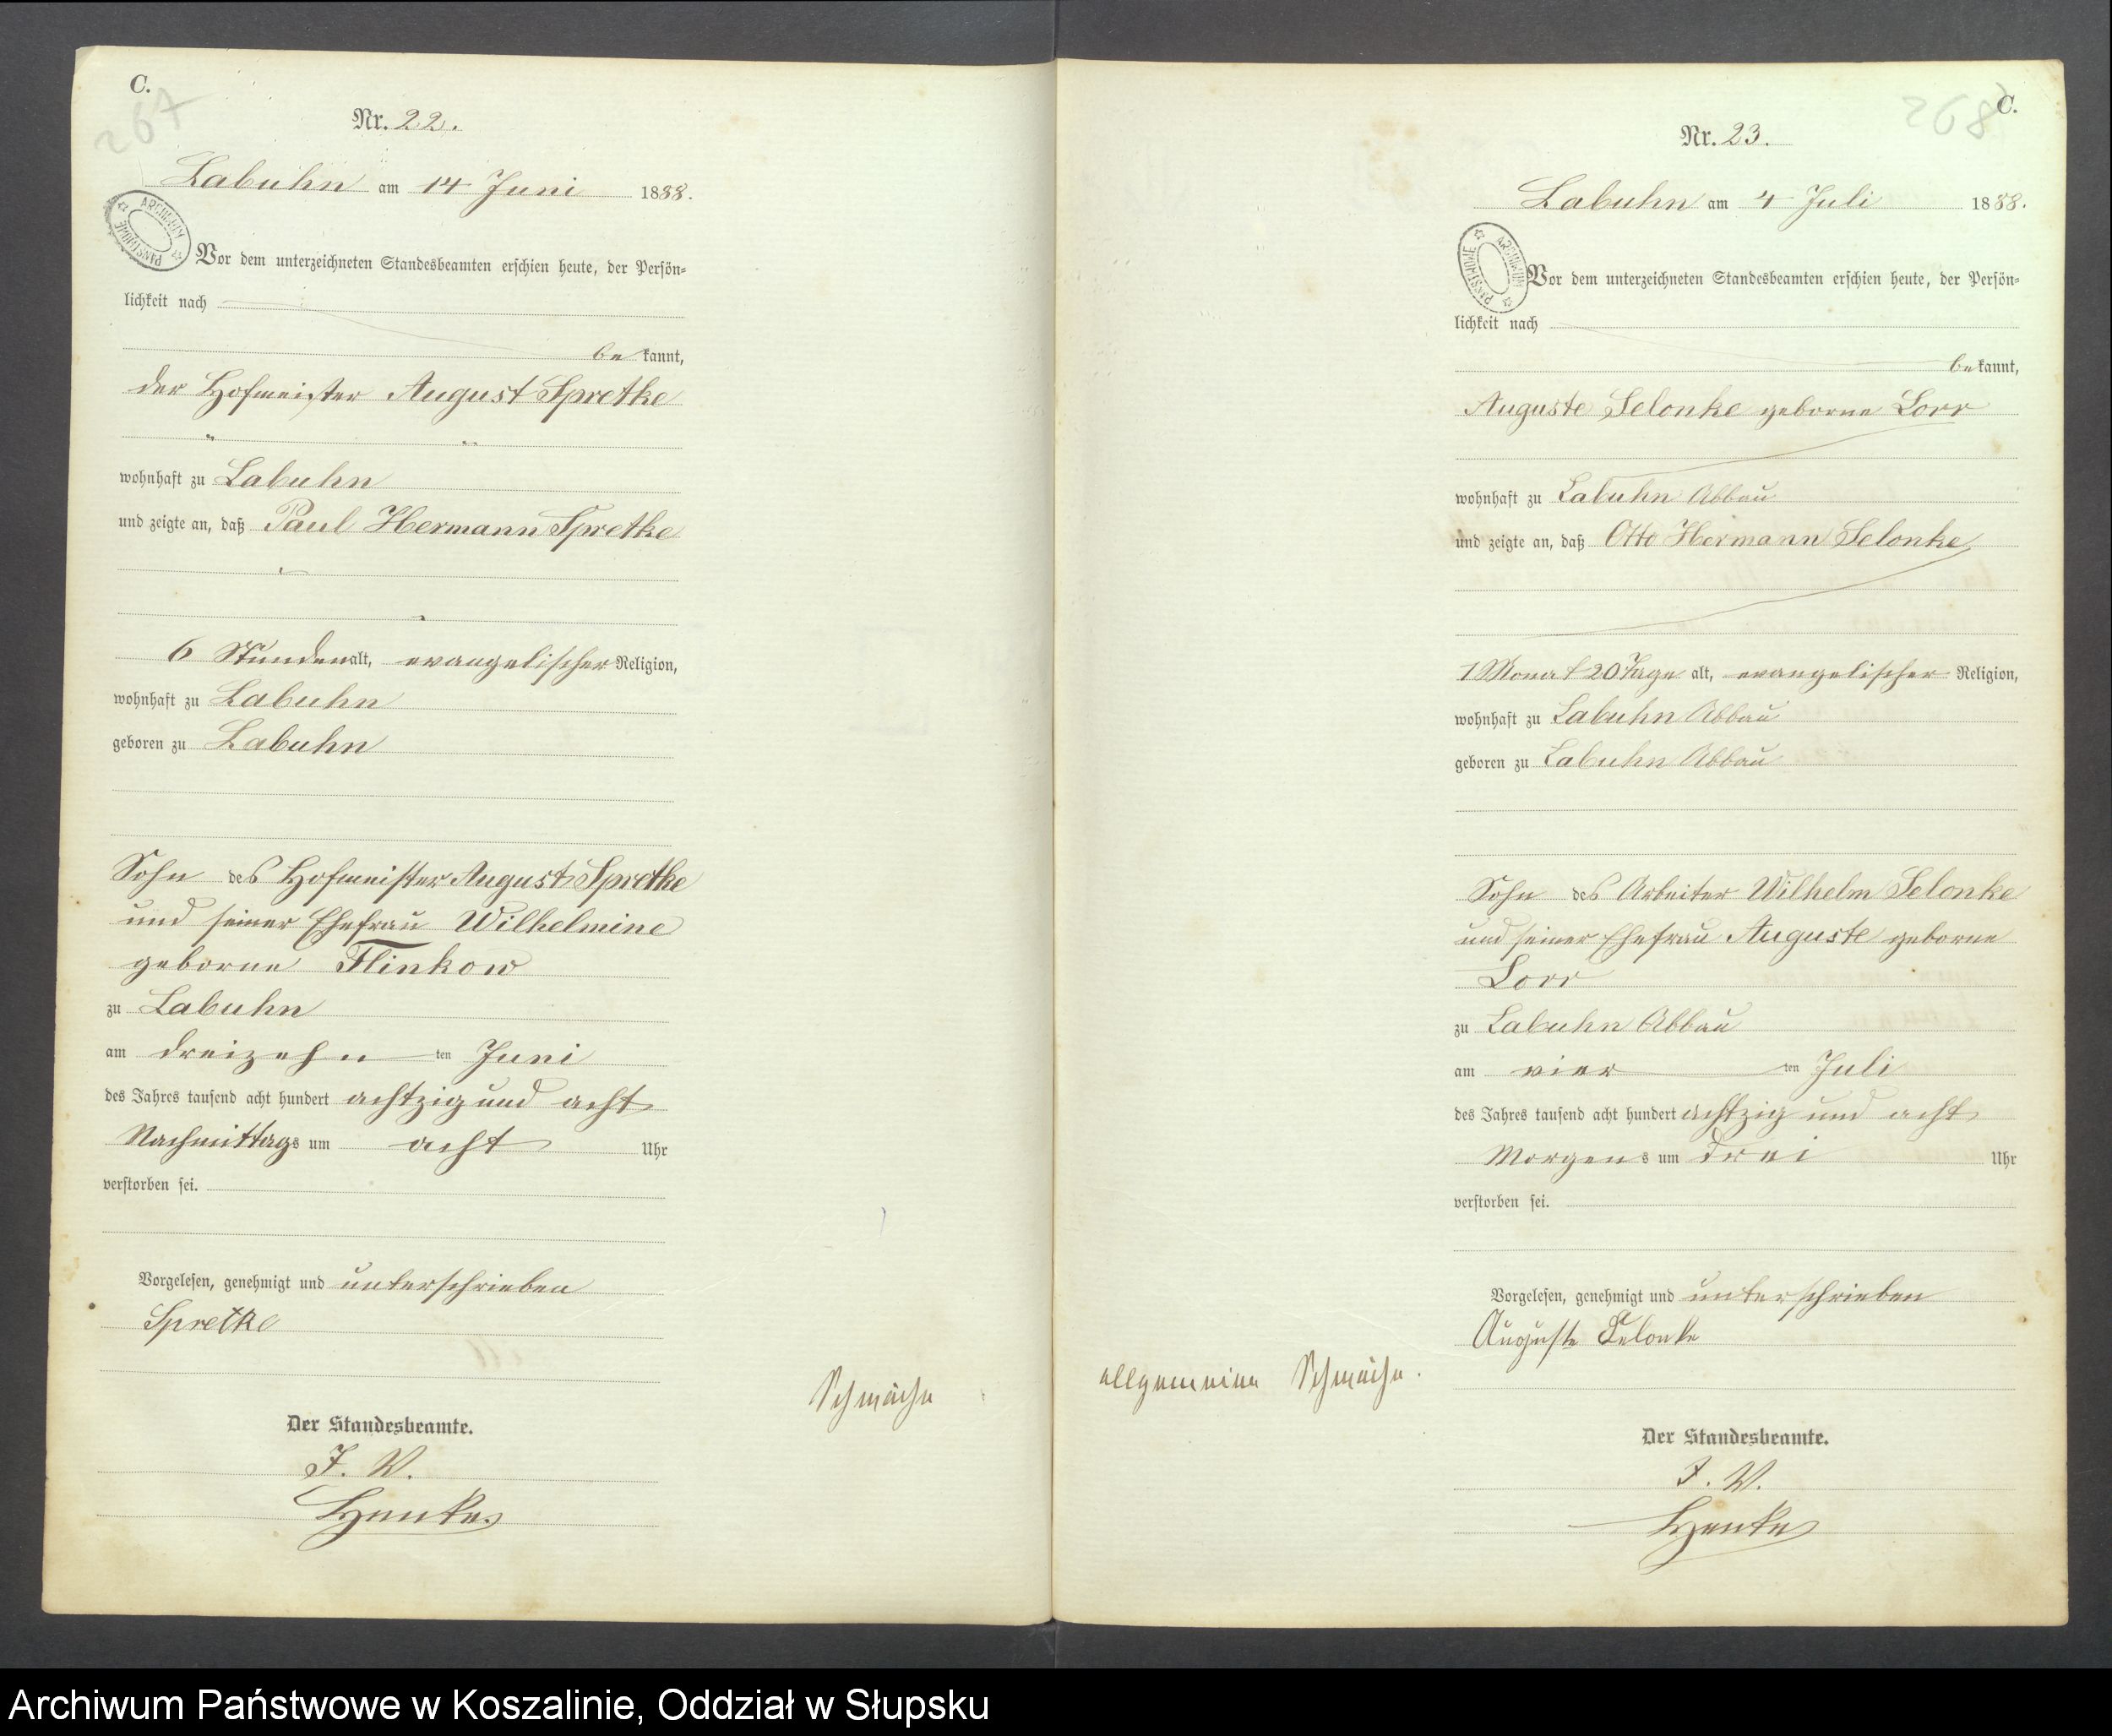 C.
267
Nr. 22.
Labuhn am 14 Juni 1888.
ARCHIWUM PAŃSTWOWE
Vor dem unterzeichneten Standesbeamten erschien heute, der Persön=
lichkeit nach
be kannt,
der Hofmeister August Spretke
wohnhaft zu Labuhn
und zeigte an, daß Paul Hermann Spretke
6 Stunden alt, evangelischer Religion,
wohnhaft zu Labuhn
geboren zu Labuhn
Sohn des Hofmeister August Spretke
und seiner Ehefrau Wilhelmine
geborne Flinkow
zu Labuhn
am dreizehn ten Juni
des Jahres tausend acht hundert achtzig und acht
Nachmittags um acht Uhr
verstorben sei.
Vorgelesen, genehmigt und unterschrieben
Spretke
Schwäche
Der Standesbeamte.
J. V.
Henke
C.
268
Nr. 23.
Labuhn am 4 Juli 1888.
ARCHIWUM PAŃSTWOWE
Vor dem unterzeichneten Standesbeamten erschien heute, der Persön=
lichkeit nach
be kannt,
Auguste Selonke geborne Lorr
wohnhaft zu Labuhn Abbau
und zeigte an, daß Otto Hermann Selonke
1 Monat 20 Tage alt, evangelischer Religion,
wohnhaft zu Labuhn Abbau
geboren zu Labuhn Abbau
Sohn des Arbeiter Wilhelm Selonke
und seiner Ehefrau Auguste geborne
Lorr
zu Labuhn Abbau
am vier ten Juli
des Jahres tausend acht hundert achtzig und acht
Morgens um drei Uhr
verstorben sei.
Vorgelesen, genehmigt und unterschrieben
Auguste Selonke
allgemeine Schwäche.
Der Standesbeamte.
J. V.
Henke
Archiwum Państwowe w Koszalinie, Oddział w Słupsku